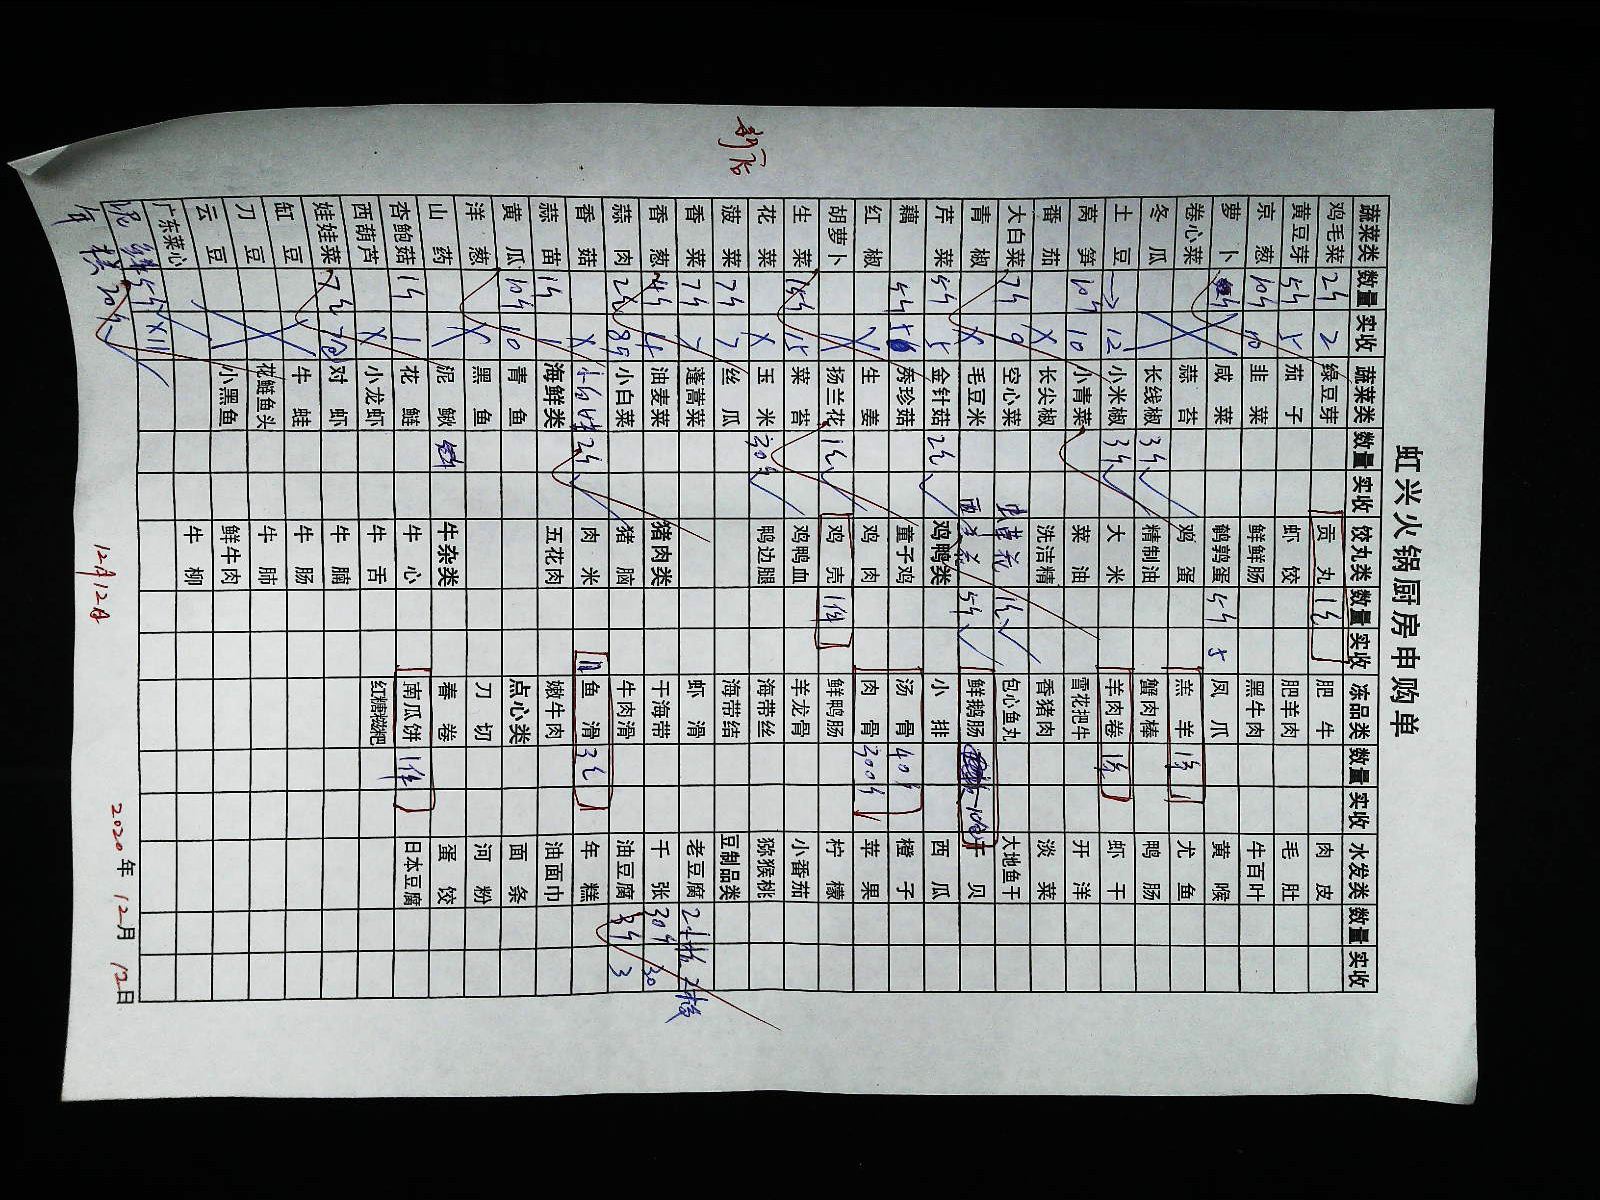 虹兴火锅厨房申购单
新店
蔬菜类 数量 实收 蔬菜类 数量 实收 饺丸类 数量 实收 冻品类 数量 实收 水发类 数量 实收
鸡毛菜 2斤 2 绿豆芽 贡丸 1包 肥牛 肉皮
黄豆芽 5斤 5 茄子 虾饺 肥羊肉 毛肚
京葱 10斤 10 韭菜 鲜鲜肠 黑牛肉 牛百叶
萝卜 咸菜 鹌鹑蛋 5斤 5 凤爪 黄喉
卷心菜 蒜苔 鸡蛋 羔羊 1件 尤鱼
冬瓜 长线椒 3斤 精制油 蟹肉棒 鸭肠
土豆 12 小米椒 3斤 大米 羊肉卷 虾干
莴笋 10斤 10 小青菜 菜油 雪花把牛 开洋
番茄 X 长尖椒 洗洁精 香猪肉 淡菜
大白菜 7斤 9 空心菜 虫草花 1包 包心鱼丸 大地鱼干
青椒 X 毛豆米 西兰花 5斤 鲜鹅肠 干贝
芹菜 5斤 5 金针菇 2包 鸡鸭类 小排 西瓜
藕 5斤 秀珍菇 童子鸡 汤骨 40斤 橙子
红椒 X 生姜 鸡肉 肉骨 300斤 苹果
胡萝卜 X 扬兰花 1包 鸡壳 1件 鲜鸭肠 柠檬
生菜 15斤 15 菜苔 鸡鸭血 羊龙骨 小番茄
花菜 X 玉米 30斤 鸭边腿 海带丝 猕猴桃
菠菜 7斤 7 丝瓜 海带结 豆制品类
香菜 7斤 7 蓬蒿菜 虾滑 老豆腐 2板 2板
香葱 4斤 4 油麦菜 猪肉类 干海带 千张 30斤 30
蒜肉 小白菜 猪脑 牛肉滑 油豆腐 3斤 3
香菇 X 2斤 肉米 鱼滑 3包 年糕
蒜苗 1斤 1 海鲜类 五花肉 嫩牛肉 油面巾
黄瓜 10斤 10 青鱼 点心类 面条
洋葱 X 黑鱼 刀切 河粉
山药 泥鳅 牛杂类 春卷 蛋饺
杏鲍菇 1斤 1 花鲢 牛心 南瓜饼 1件 日本豆腐
西葫芦 X 小龙虾 牛舌 红糖糍粑
娃娃菜 对虾 牛腩
缸豆 牛蛙 牛肠
刀豆 花鲢鱼头 牛肺
云豆 小黑鱼 鲜牛肉
广东菜心 牛柳
12月12日
2020年12月12日